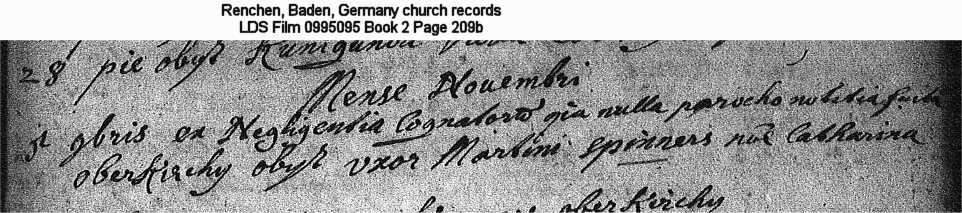 Renchen, Baden, Germany church records
LDS Film 0995095 Book 2 Page 209b
28 pie obijt Kunigunda
Mense Nouembri
9bris ex Negligentia Cognatorū qia nulla parocho notitia facta
oberkirchÿ obijt vxor Martini spinners noē Catharina
oberkirchÿ